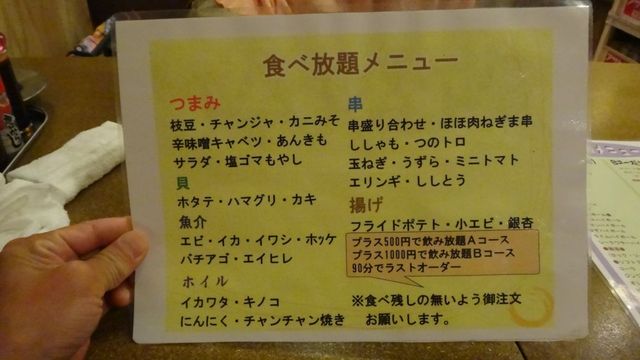 食べ放題メニュー
つまみ
枝豆・チャンジャ・カニみそ
辛味噌キャベツ・あんきも
サラダ・塩ゴマもやし
貝
ホタテ・ハマグリ・カキ
魚介
エビ・イカ・イワシ・ホッケ
バチアゴ・エイヒレ
ホイル
イカワタ・キノコ
にんにく・チャンチャン焼き
串
串盛り合わせ・ほほ肉ねぎま串
ししゃも・つのトロ
玉ねぎ・うずら・ミニトマト
エリンギ・ししとう
揚げ
フライドポテト・小エビ・銀杏
プラス500円で飲み放題Aコース
プラス1000円で飲み放題Bコース
90分でラストオーダー
※食べ残しの無いよう御注文
お願いします。